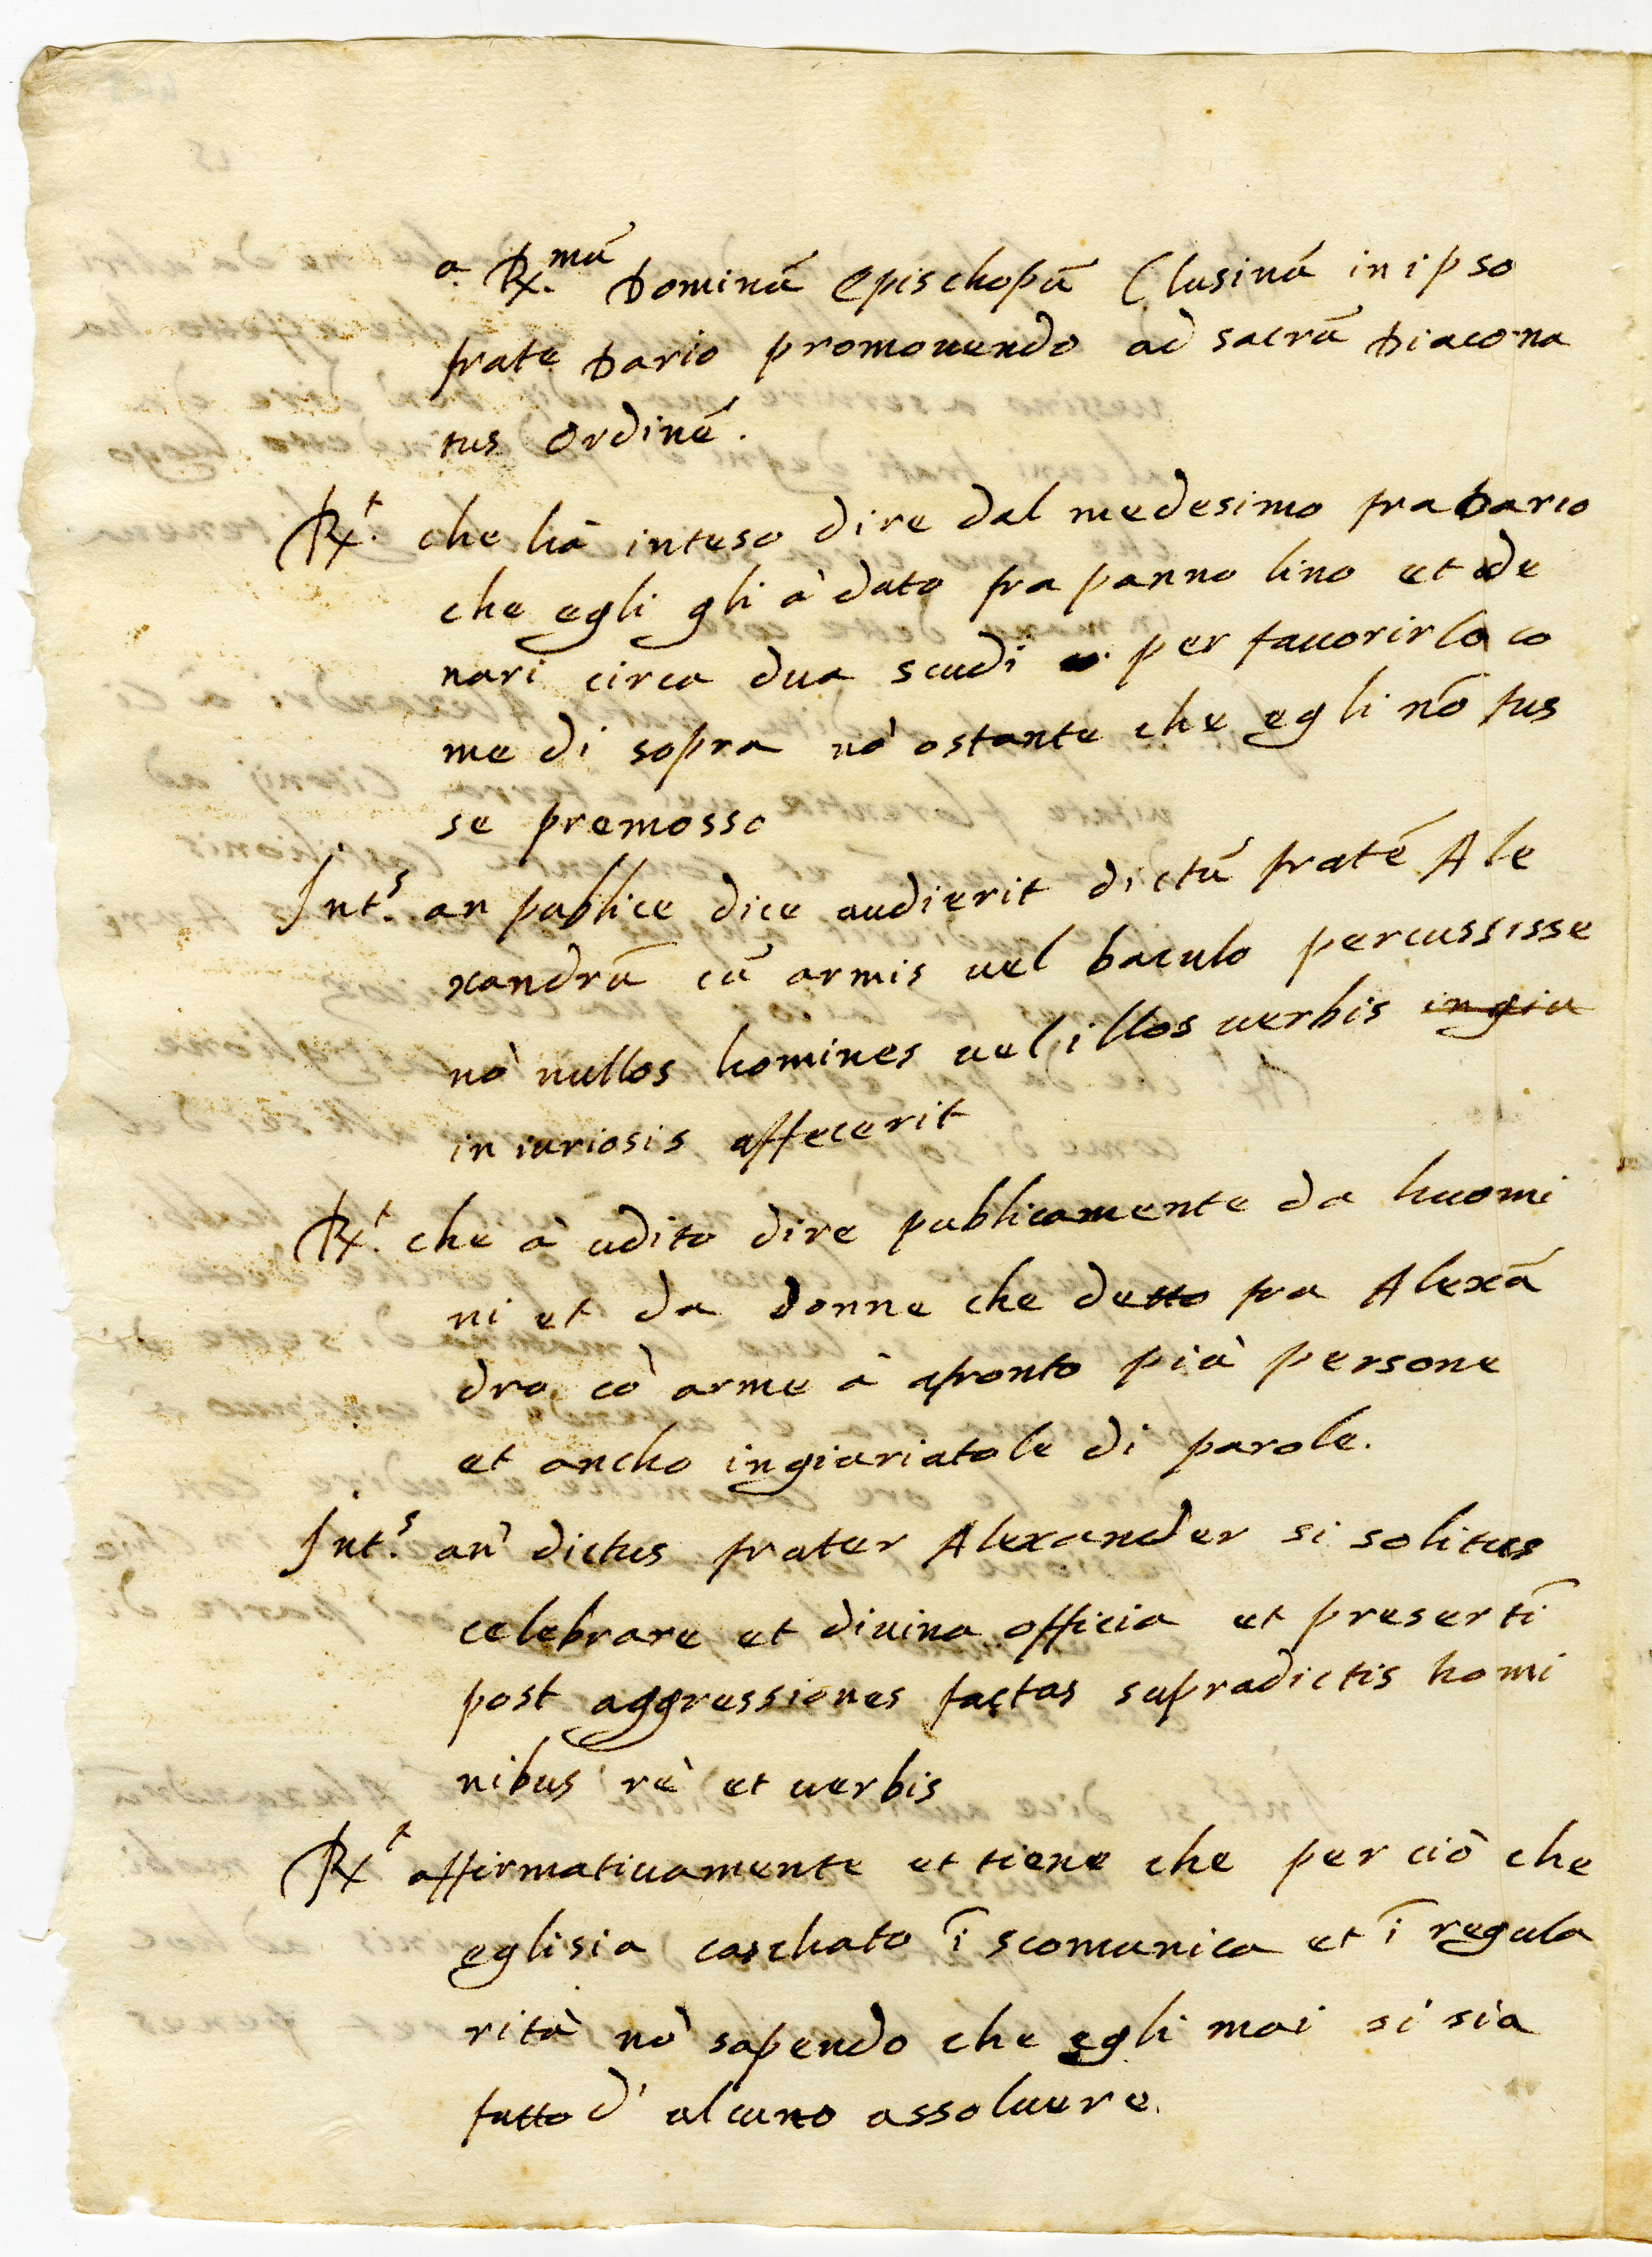 a. R.mū Dominū Epischopū Clusinū in ipso
frate Dario promouendo ad sacrū Diacona
tus ordinē.
R.t che hà inteso dire dal medesimo fra Dario
che egli gli à dato fra panno lino et de
nari circa dua scudi per fauorirlo co
me di sopra nō ostante che egli nō fus
se premosso
Int.s an publice dice audierit dictū fratē Ale
xandrū cū armis uel baculo percussisse
nō nullos homines uel illos uerbis ingiu
iniuriosis affecerit
R.t che à udito dire publicamente da huomi
ni et da donne che detto fra Alexā
dro cō arme à afronto più persone
et ancho ingiuriatole di parole.
Int.s an dictus frater Alexander si solitus
celebrare et diuina officia et presertī
post aggressiones factas supradictis homi
nibus rè et uerbis
R.t affirmatiuamente et tiene che per ciò che
egli sia caschato ī scomunica et ī regula
rità nō sapendo che egli mai si sia
fatto d' alcuno assoluere.